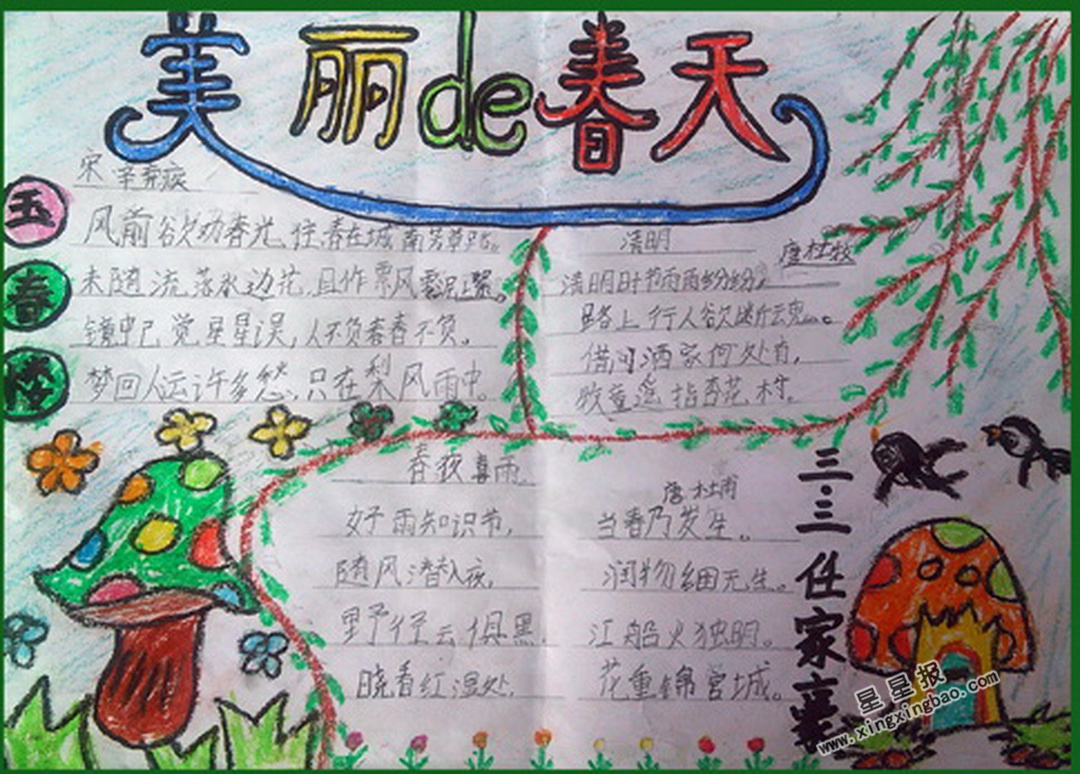 美丽de春天
玉
春
宋 辛弃疾
风前欲劝春光住,春在城南芳草路。
未随流落水边花,且作飘零泥上絮。
镜中已觉星星误,人不负春春不负。
梦回人运许多愁,只在梨风雨中。
清明
唐杜牧
清明时节雨雨纷纷。
路上行人欲断魂。
借问酒家何处有,
牧童遥指杏花村。
春夜喜雨
唐 杜甫
好雨知识节, 当春乃发生。
随风潜入夜, 润物细无生。
野径云俱黑, 江船火独明。
晓看红湿处, 花重锦官城。
三三任家
星星报
www.xingxingbao.com